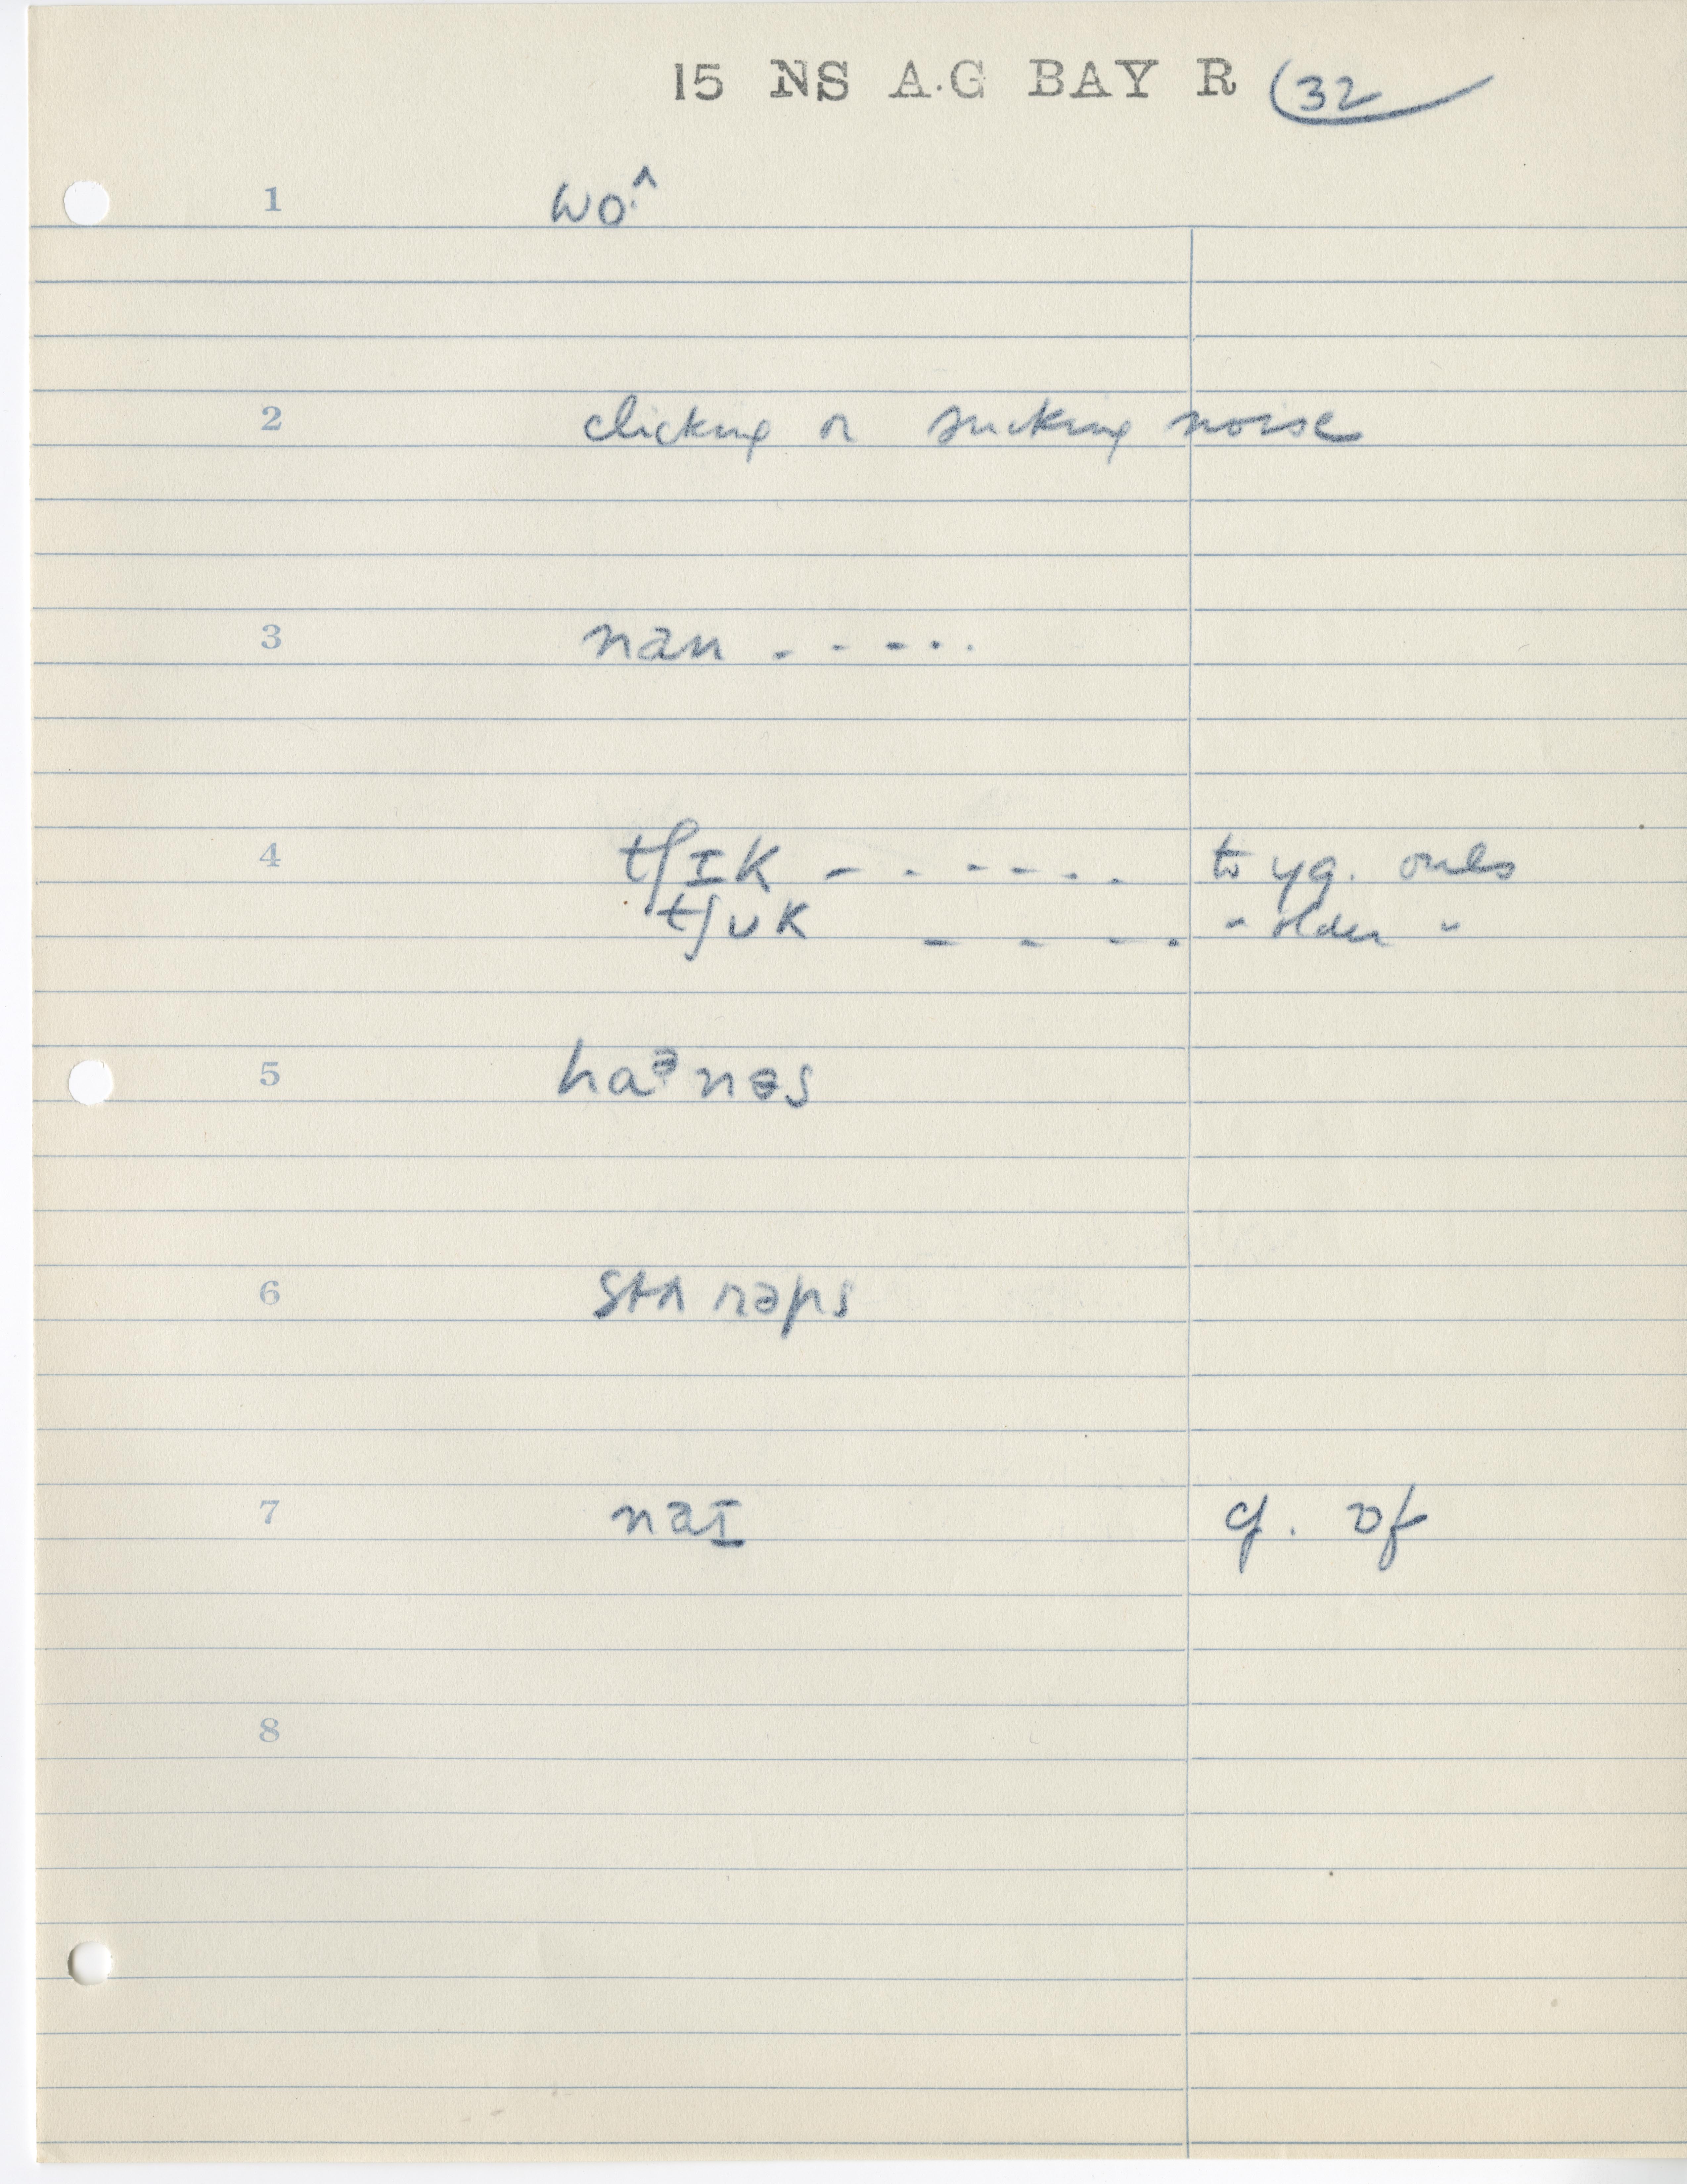 15 NS A.G BAY R 32
1 wo.^
2 clicking or sucking noise
3 nan . - - . . .
4 tʃɪk - . - - - . . to yg. ones
tʃʊk - - - . " older "
5 haᵊnəs
6 stʌrəps
7 naɪ q. of
8